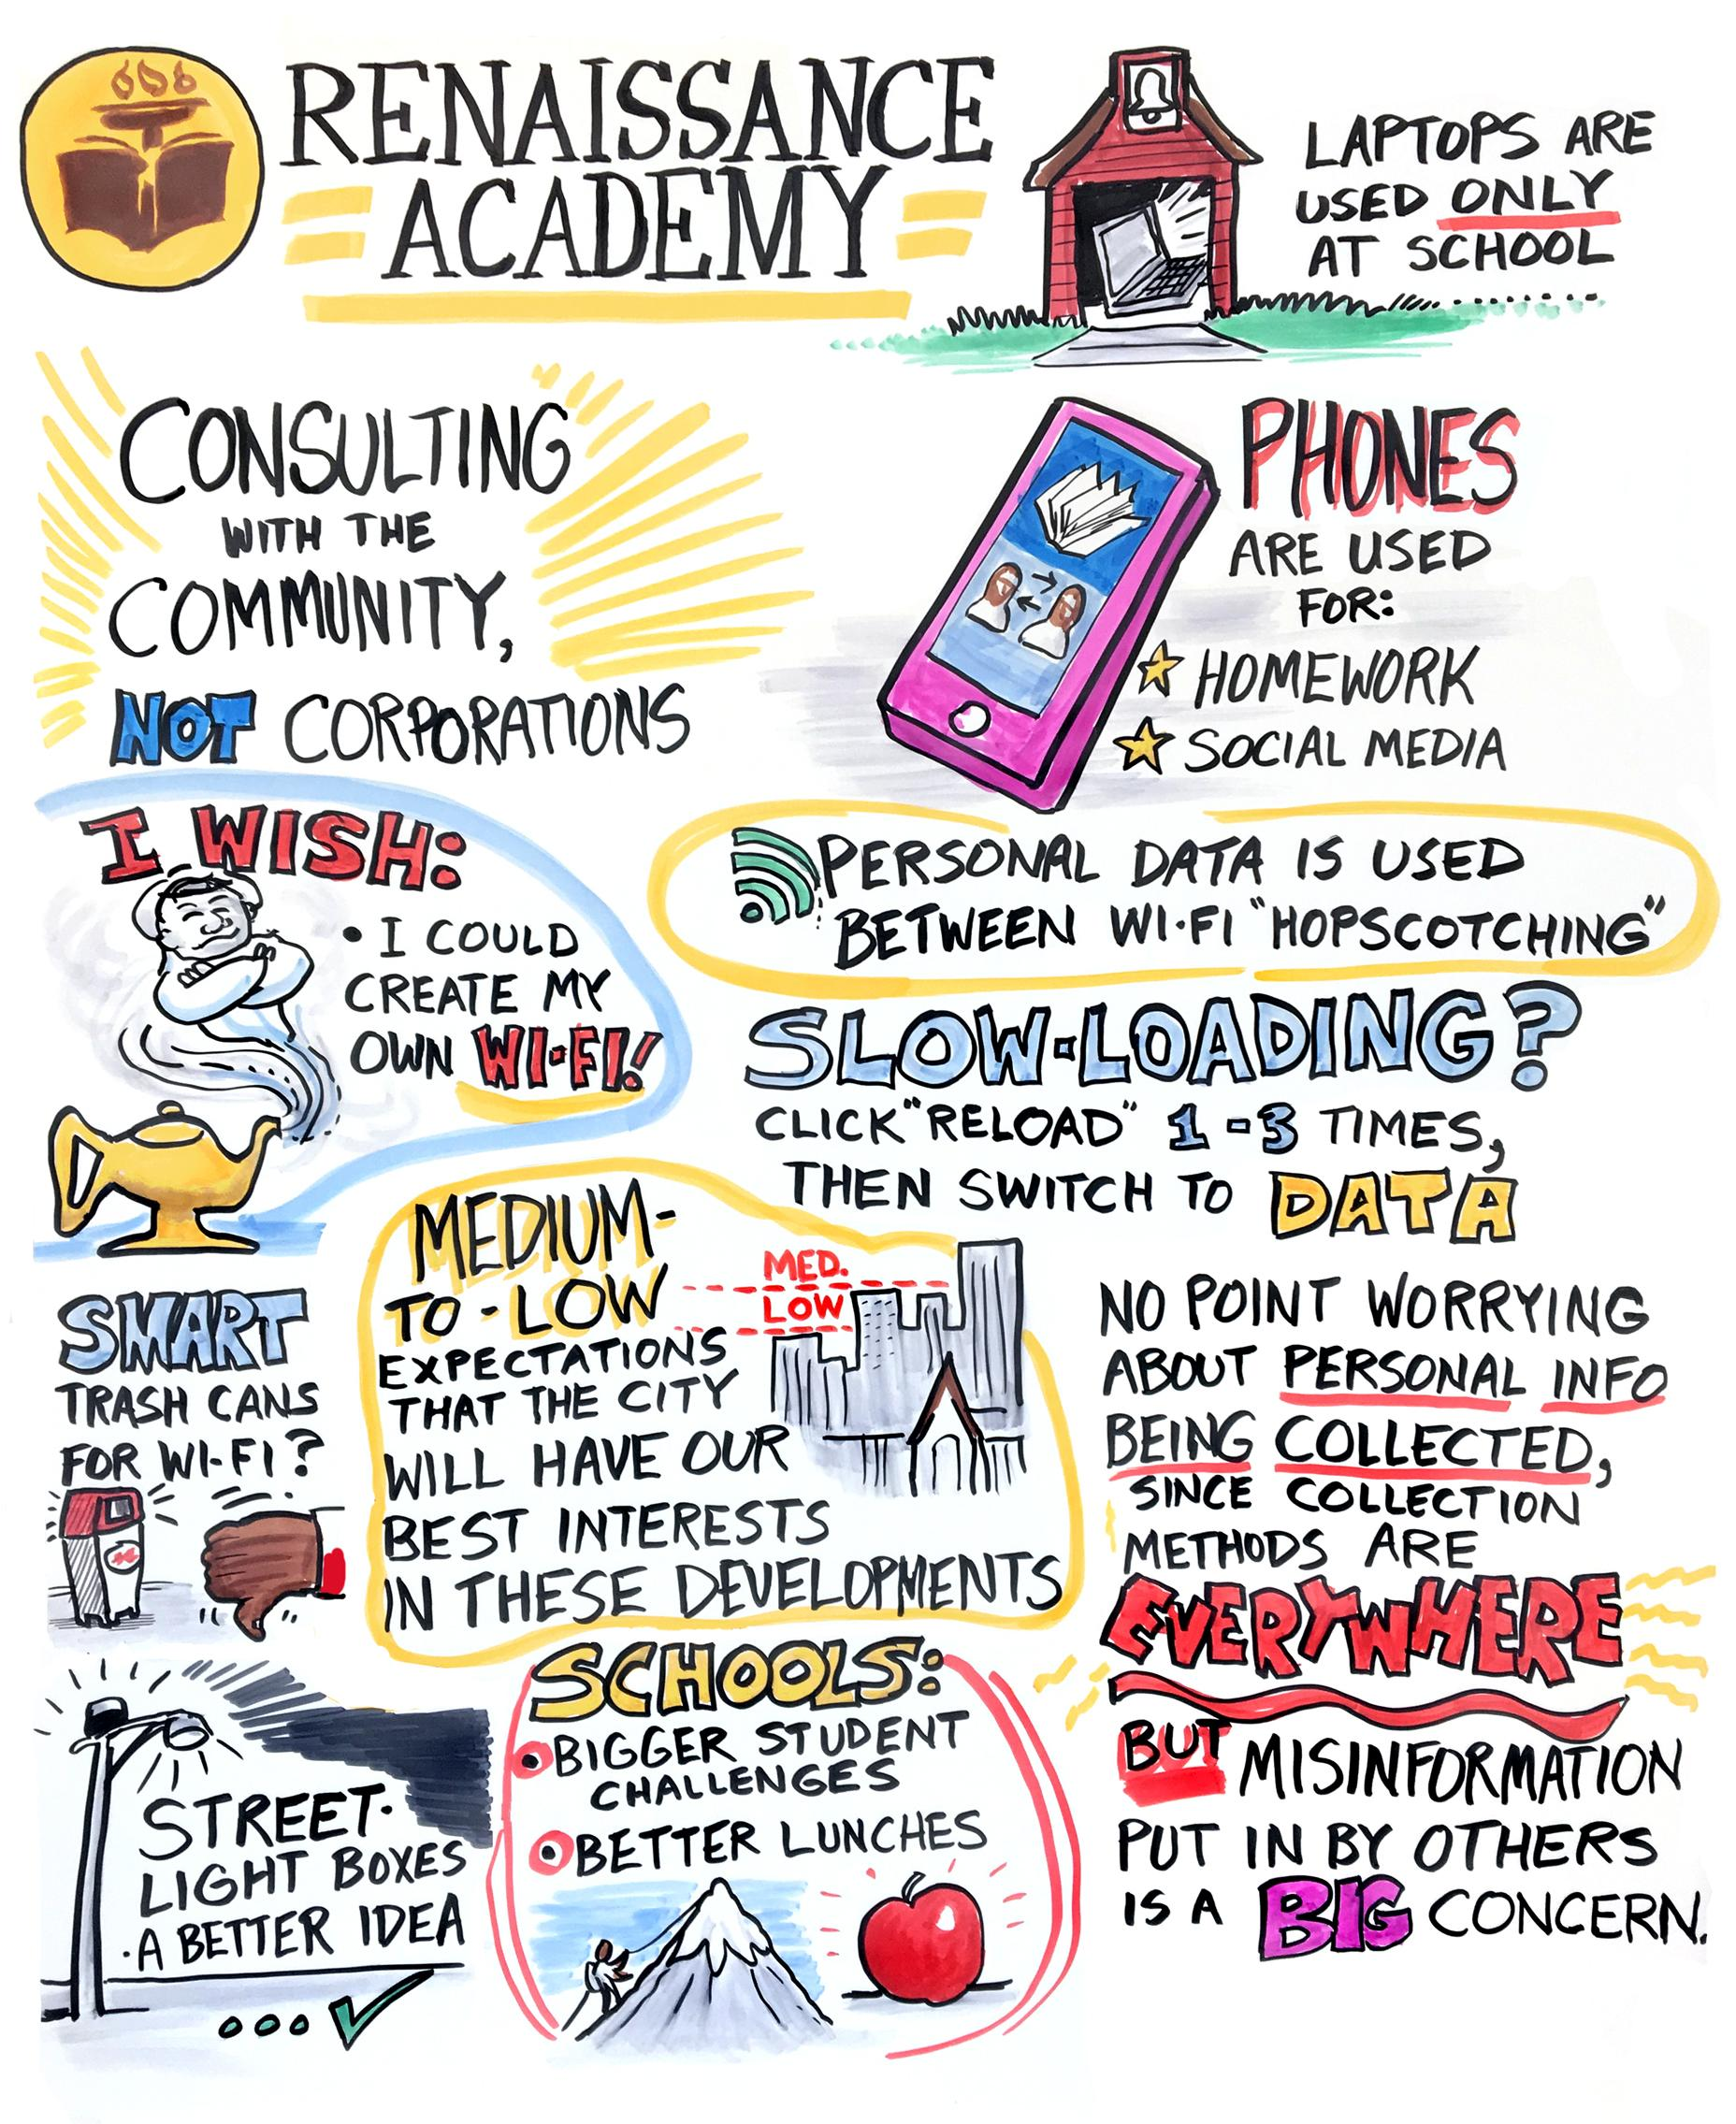 RENAISSANCE
ACADEMY
LAPTOPS ARE
USED ONLY
AT SCHOOL
CONSULTING
WITH THE
COMMUNITY,
NOT CORPORATIONS
PHONES
ARE USED
FOR:
HOMEWORK
SOCIAL MEDIA
I WISH:
• I COULD
CREATE MY
OWN WI-FI!
PERSONAL DATA IS USED
BETWEEN WI-FI "HOPSCOTCHING"
SLOW-LOADING?
CLICK "RELOAD" 1-3 TIMES,
THEN SWITCH TO DATA
MEDIUM-
TO-LOW
EXPECTATIONS
THAT THE CITY
WILL HAVE OUR
BEST INTERESTS
IN THESE DEVELOPMENTS
MED.
LOW
SMART
TRASH CANS
FOR WI-FI?
NO POINT WORRYING
ABOUT PERSONAL INFO
BEING COLLECTED,
SINCE COLLECTION
METHODS ARE
EVERYWHERE
BUT MISINFORMATION
PUT IN BY OTHERS
IS A BIG CONCERN.
STREET-
LIGHT BOXES
A BETTER IDEA
SCHOOLS:
• BIGGER STUDENT
CHALLENGES
• BETTER LUNCHES